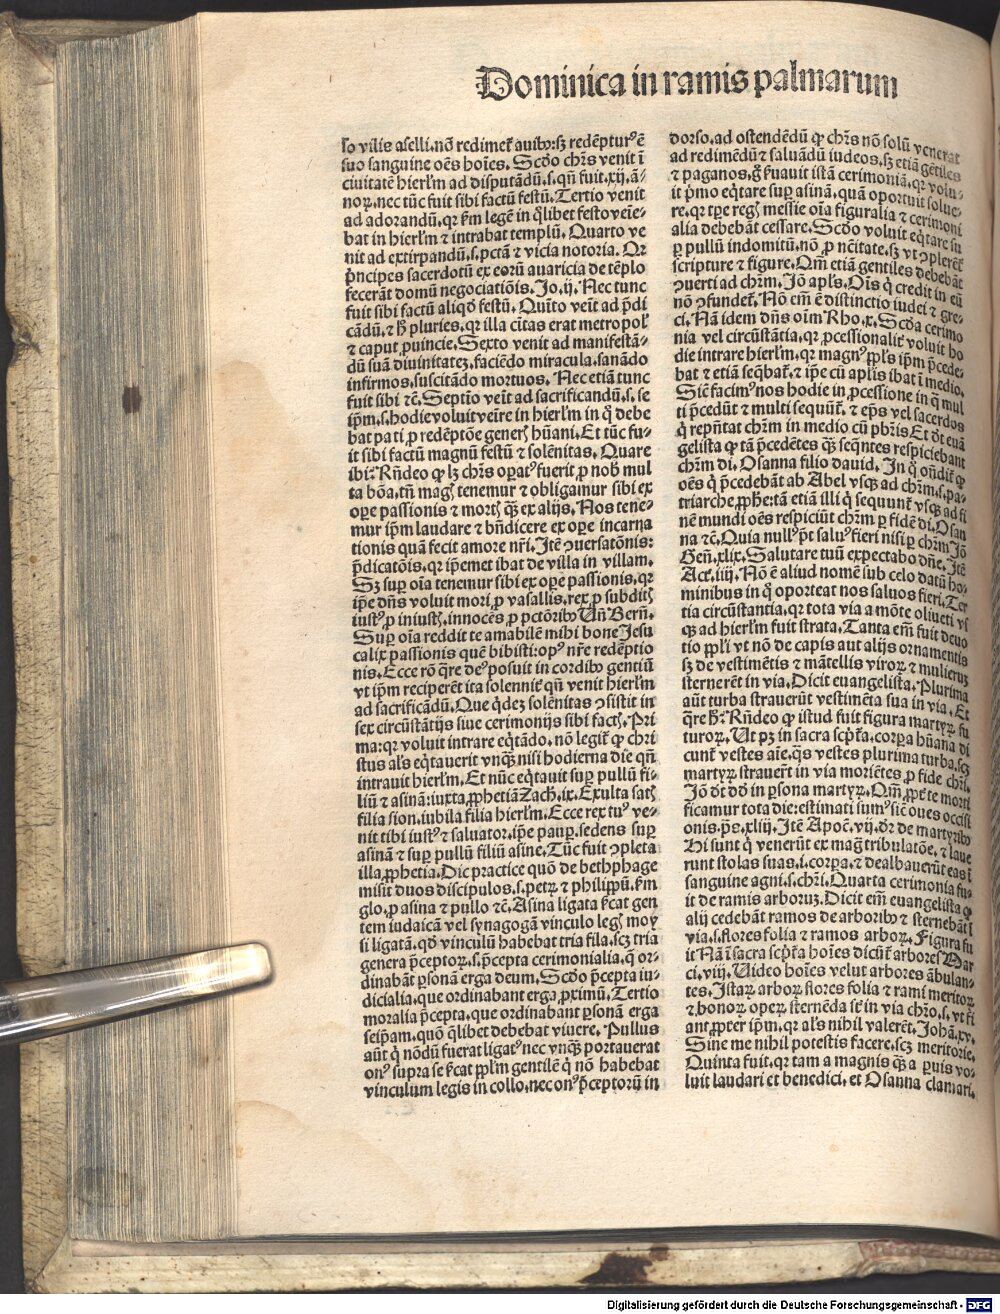 Dominica in ramis palmarum
so vilis aselli. nõ redimet᷑ auibꝰ: sꝫ redẽptur᷒ ẽ
suo sanguine oẽs hoĩes. Scḋo chr̃s venit ĩ
ciuitatẽ hierl̃m ad disputãdũ. s. qñ fuit. xij. ã-
noꝝ. nec tũc fuit sibi factũ festũ. Tertio venit
ad adorandũ. qꝛ ẜm legẽ in q̃libet festo veniẽ-
bat in hierl̃m ⁊ intrabat templũ. Quarto ve
nit ad extirpandũ. s. pctã ⁊ vicia notoria. Qꝛ
p̃ncipes sacerdotũ ex eorũ auaricia de tẽplo
fecerãt domũ negociatiõis. Jo. ij. Nec tunc
fuit sibi factũ aliqḋ festũ. Quĩto veĩt ad p̃di
cãdũ. ⁊ h̃ pluries. qꝛ illa cĩtas erat metropol̃
⁊ caput ꝓuincie. Sexto venit ad manifestã-
dũ suã diuinitateꝫ. faciẽdo miracula. sanãdo
infirmos. suscitãdo mortuos. Nec etiã tunc
fuit sibi ⁊c̃. Septĩo veĩt ad sacrificandũ. s. se
ip̃m. s. hodie voluit veĩre in hierl̃m in q̃ debe
bat pati ꝓ redẽptõe generꝭ hũani. Et tũc fu-
it sibi factũ magnũ festũ ⁊ solẽnitas. Quare
ibi? Rñdeo ꝙ lꝫ chr̃s oꝑat᷒ fuerit ꝓ nob̃ mul
ta bõa. tñ magꝭ tenemur ⁊ obligamur sibi ex
oꝑe passionis ⁊ mortꝭ q̃ꝫ ex alijs. Nos tene-
mur ip̃m laudare ⁊ bñdicere ex oꝑe incarna
tionis quã fecit amore nr̃i. Jtẽ ꝯuersatõnis:
p̃dicatõnis. qꝛ ip̃emet ibat de villa in villam.
Sꝫ suꝑ oĩa tenemur sibi ex oꝑe passionis. qꝛ
ip̃e dñs voluit mori ꝓ vasallis. rex ꝓ subditꝭ
iust᷒ ꝓ iniustꝭ. innocẽs ꝓ pctõribꝰ Uñ Berñ.
Suꝑ oĩa reddit te amabilẽ mihi bone Jesu
calix passionis quẽ bibisti: op᷒ nr̃e redẽptio
nis. Ecce rõ q̃re de᷒ posuit in cordibꝰ gentiũ
vt ip̃m reciperẽt ita solennit᷑ qñ venit hierl̃m
ad sacrificãdũ. Que q̃deꝫ solẽnitas ꝯsistit in
sex circũstãtijs siue cerimonijs sibi factꝭ. Pri
ma: qꝛ voluit intrare eq̃tãdo. nõ legit᷑ ꝙ chri
stus al̃s eq̃tauerit vnq̃ꝫ nisi hodierna die qñ
intrauit hierl̃m. Et nũc eq̃tauit suꝑ pullũ fi-
liũ ⁊ asinã: iuxta ꝓphetiã Zach̃. ix. Exulta satꝭ
filia sion. iubila filia hierl̃m. Ecce rex tu᷒ ve-
nit tibi iust᷒ ⁊ saluator. ip̃e paup̃. sedens suꝑ
asinã ⁊ suꝑ pullũ filiũ asine. Tũc fuit ꝯpleta
illa ꝓphetia. Dic practice quõ de bethphage
misit duos discipulos. s. petꝝ ⁊ philippũ. ẜm
glo. ꝓ asina ⁊ pullo ⁊c̃. Asina ligata ẜcat gen
tem iudaicã vel synagogã vinculo legꝭ moy
si ligatã. qḋ vinculũ habebat tria fila. scꝫ tria
genera p̃ceptoꝝ. s. p̃cepta cerimonialia. q̃ or-
dinabãt ꝑsonã erga deum. Scḋo p̃cepta iu-
dicialia. que ordinabant erga ꝓximũ. Tertio
moralia p̃cepta. que ordinabant ꝑsonã erga
seip̃am. quõ q̃libet debebat viuere. Pullus
aũt q̃ nõdũ fuerat ligat᷒ nec vnq̃ꝫ portauerat
on᷒ supra se ẜcat ppl̃m gentilẽ q̃ nõ habebat
vinculum legis in collo. nec on᷒ p̃ceptorũ in
dorso. ad ostendẽdũ ꝙ chr̃s nõ solũ venerat
ad redimẽdũ ⁊ saluãdũ iudeos. sꝫ etiã gẽtiles
⁊ paganos. g̃ ẜuauit istã cerimoniã. qꝛ volu-
it p̃mo eq̃tare suꝑ asinã. quã oportuit solue-
re. qꝛ tꝑe regꝭ messie oĩa figuralia ⁊ cerimoni
alia debebãt cessare. Scḋo voluit eq̃tare su
ꝑ pullũ indomitũ. nõ ꝓ nc̃itate. sꝫ vt ꝯplerẽt᷑
scripture ⁊ figure. Qm̃ etiã gentiles debebãt
ꝯuerti ad chr̃m. Jõ apl̃s. Oĩs q̃ credit in eũ
nõ ꝯfundet᷑. Nõ em̃ ẽ distinctio iudei ⁊ gre-
ci. Nã idem dñs oĩm Rho. x. Scḋa cerimo
nia vel circũstãtia. qꝛ ꝓcessionalit᷑ voluit ho
die intrare hierl̃m. qꝛ magn᷒ ppl̃s ip̃m p̃cede-
bat ⁊ etiã seq̃bat᷑. ⁊ ip̃e cũ apl̃is ibat ĩ medio.
Sic̃ facim᷒ nos hodie in ꝓcessione in q̃ mul
ti p̃cedũt ⁊ multi sequũt᷑. ⁊ ep̃s vel sacerdos
q̃ rep̃ñtat chr̃m in medio cũ pb̃ris Et ḋt euã
gelista ꝙ tã p̃cedẽtes q̃ꝫ seq̃ntes respiciebant
chr̃m di. Osanna filio dauid. Jn q̃ oñdit᷑ ꝙ
oẽs q̃ p̃cedebãt ab Abel vsq̃ꝫ ad chr̃m. s. pa-
triarche. ꝓphe: tã etiã illi q̃ sequunt᷑ vsq̃ꝫ ad fi
nẽ mundi oẽs respiciũt chr̃m ꝑ fidẽ di. Osan
na ⁊c̃. Quia null᷒ p̃t salu᷒ fieri nisi ꝑ chr̃m Jõ
Geñ. xlix. Salutare tuũ expectabo dñe. Jtẽ
Act̃. iiij. Nõ ẽ aliud nomẽ sub celo datũ ho-
minibus in q̃ oporteat nos saluos fieri. Ter
tia circũstantia. qꝛ tota via a mõte oliueti vs
q̃ꝫ ad hierl̃m fuit strata. Tanta em̃ fuit deuo
tio ppl̃i vt nõ de capis aut alijs ornamentis
sꝫ de vestimẽtis ⁊ mãtellis viroꝝ ⁊ mulierũ
sternerẽt in via. Dicit euangelista. Plurima
aũt turba strauerũt vestimẽta sua in via. Et
q̃re h̃? Rñdeo ꝙ istud fuit figura martyꝝ fu
turoꝝ. Ut pꝫ in sacra scp̃ta. corꝑa hũana di
cunt᷑ vestes aĩe. q̃s vestes plurima turba. scꝫ
martyꝝ strauerũt in via moriẽtes ꝓ fide chr̃i.
Jõ ḋt dõ in ꝑsona martyꝝ. Qm̃ ꝓpt̃ te morti
ficamur tota die: estimati sum᷒ sic̃ oues occisi
onis. p̃s. xliij. Jtẽ Apoc̃. vij. dr̃ de martyribꝰ
Hi sunt q̃ venerũt ex mag̃ tribulatõe. ⁊ laue
runt stolas suas. i. corꝑa. ⁊ dealbauerũt eas ĩ
sanguine agni. s. chr̃i. Quarta cerimonia fu-
it de ramis arboruꝫ. Dicit em̃ euangelista ꝙ
alij cedebãt ramos de arboribꝰ ⁊ sternebãt ĩ
via. s. flores folia ⁊ ramos arboꝝ. Figura fu
it Nã ĩ sacra scp̃ta hoĩes dicũt᷑ arbores Mar
ci. viij. Uideo hoĩes velut arbores ãbulan-
tes. Jstaꝝ arboꝝ flores folia ⁊ rami meritoꝝ
⁊ bonoꝝ oꝑeꝝ sternẽda st̃ in via chr̃o. s. vt fi
ant ꝓpter ip̃m. qꝛ al̃s nihil valerẽt. Johã. xv.
Sine me nihil potestis facere. scꝫ meritorie.
Quinta fuit. qꝛ tam a magnis q̃ꝫ a paruis vo-
luit laudari et benedici. et Osanna clamari.
Digitalisierung gefördert durch die Deutsche Forschungsgemeinschaft - DFG